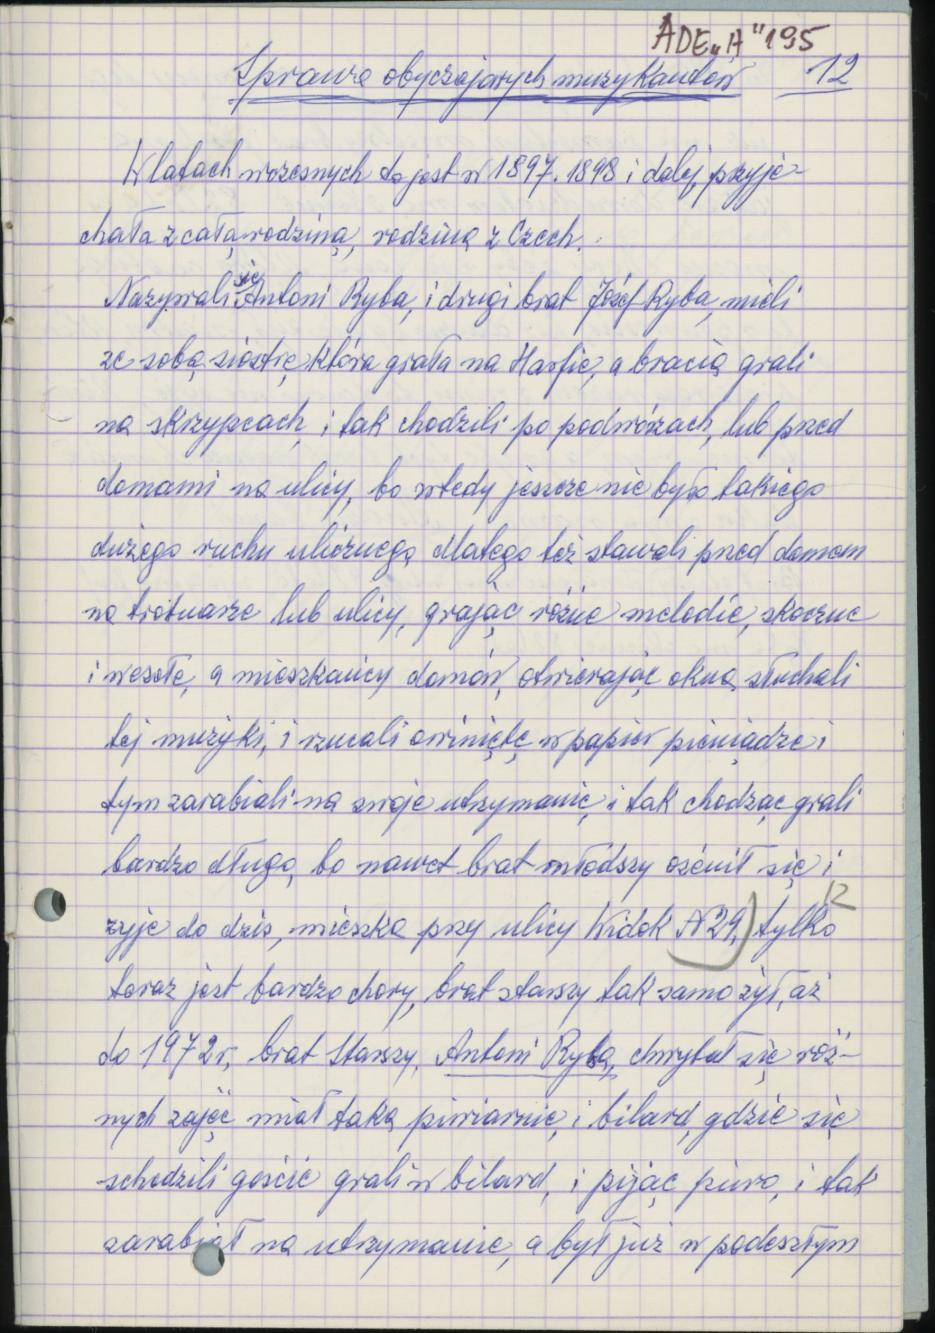 ADE„A"195
Sprawa obyczajowych muzykantów 12
W latach wczesnych to jest w 1897. 1898 i dalej, przyje-
chała z całą rodziną, rodzina z Czech.
Nazywali się Antoni Ryba, i drugi brat Józef Ryba, mieli
ze sobą siostrę, która grała na Harfie, a bracia grali
na skrzypcach, i tak chodzili po podwórzach, lub przed
domami na ulicy, bo wtedy jeszcze nie było takiego
dużego ruchu ulicznego, dlatego też stawali przed domem
na trotuarze lub ulicy, grając różne melodie, skoczne
i wesołe, a mieszkańcy domów, otwierając okna, słuchali
tej muzyki, i rzucali owinięte w papier pieniądze i
tym zarabiali na swoje utrzymanie, i tak chodząc grali
bardzo długo, bo nawet brat młodszy ożenił się i
żyje do dziś, mieszka przy ulicy Widok N 29, tylko
12
teraz jest bardzo chory, brat starszy tak samo żył, aż
do 1972 r, brat Starszy, Antoni Ryba, chwytał się róż-
nych zajęć miał taką piwiarnię, i bilard, gdzie się
schodzili goście grali w bilard, i pijąc piwo, i tak
zarabiał na utrzymanie, a był już w podeszłym